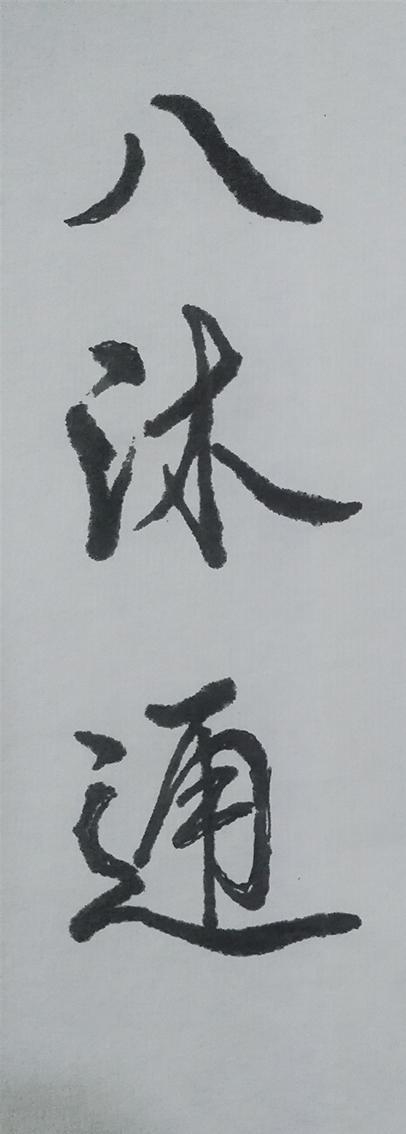 八沐通